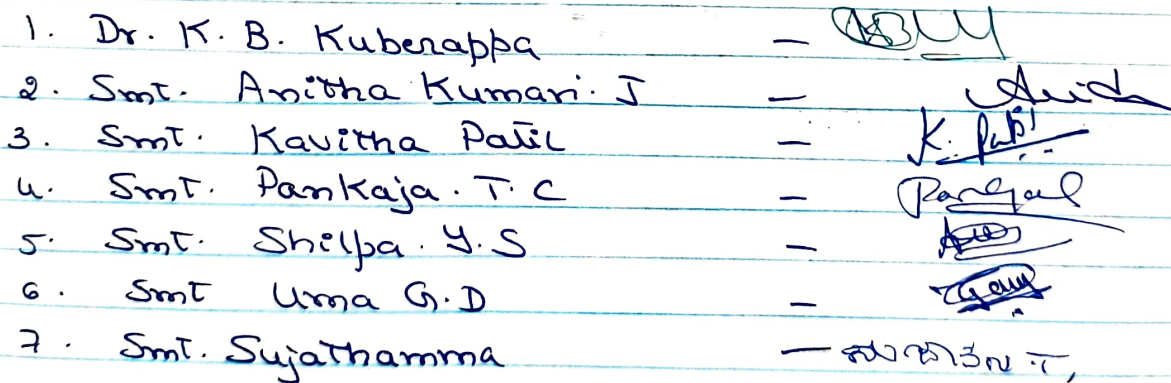 1. Dr. K. B. Kuberappa –
2. Smt. Anitha Kumari. J –
3. Smt. Kavitha Patil – K. Patil
4. Smt. Pankaja. T. C –
5. Smt. Shilpa. Y. S –
6. Smt Uma G. D –
7. Smt. Sujathamma –